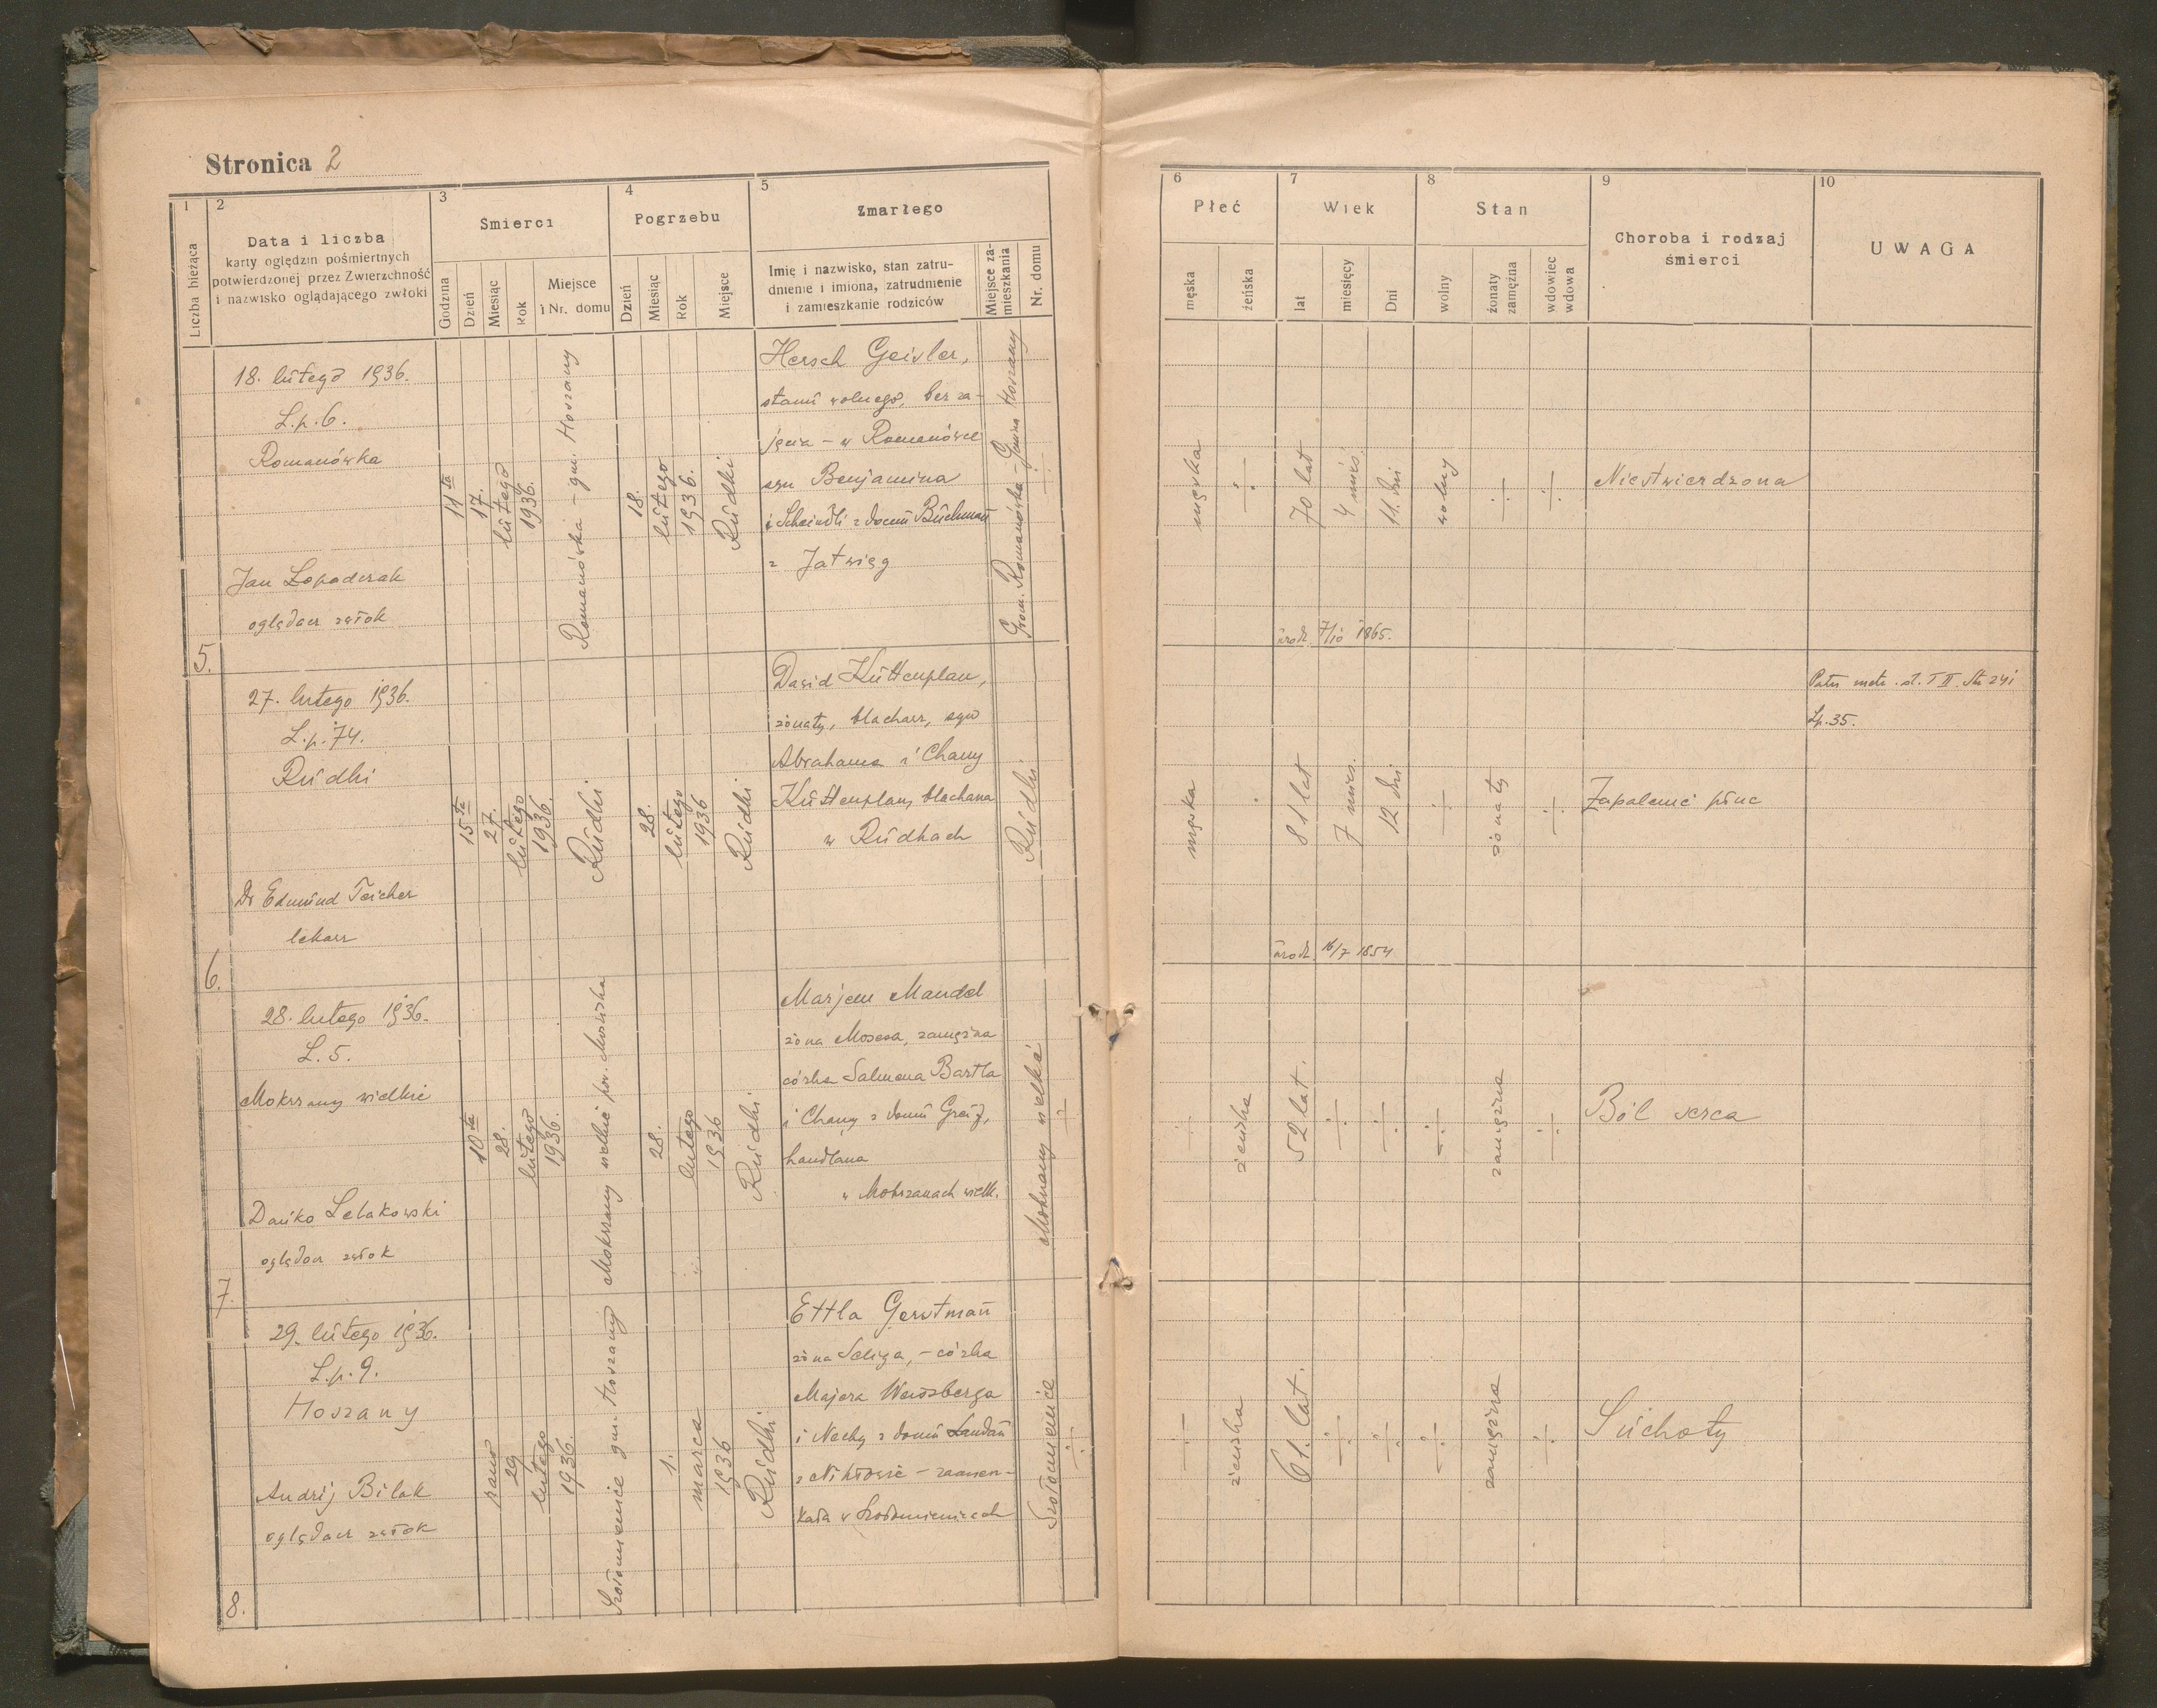 Stronica 2
1
Liczba bieżąca
2
Data i liczba
karty oględzin pośmiertnych
potwierdzonej przez Zwierzchność
i nazwisko oglądającego zwłoki
3
Smierci
Godzina
Dzień
Miesiąc
Rok
Miejsce
i Nr. domu
4
Pogrzebu
Dzień
Miesiąc
Rok
Miejsce
5
Zmarłego
Imię i nazwisko, stan zatru-
dnienie i imiona, zatrudnienie
i zamieszkanie rodziców
Miejsce za-
mieszkania
Nr. domu
6
Płeć
męska
żeńska
7
Wiek
lat
miesięcy
Dni
8
Stan
wolny
żonaty
zamężna
wdowiec
wdowa
9
Choroba i rodzaj
śmierci
10
UWAGA
5.
18. lutego 1936.
L.p. 6.
Romanówka
Jan Łopadczak
oglądacz zwłok
11ta
17.
lutego
1936.
Romanówka - gm. Hoszany
18.
lutego
1936.
Rudki
Hersch Geisler,
stanu wolnego, bez za-
jęcia - w Romanówce
syn Benjamina
i Scheindli z domu Buchman
z Jatwięg
Grom. Romanówka - Gmina Hoszany
męska
70 lat
4 mies.
11. dni
wolny
Niestwierdzona
urodz. 7/10 1865.
6.
27. lutego 1936.
L.p. 74.
Rudki
Dr Edmund Teicher
lekarz
15ta
27.
lutego
1936.
Rudki.
28.
lutego
1936
Rudki
Dawid Küttenplan,
żonaty, blacharz, syn
Abrahama i Chany
Küttenplan, blacharza
w Rudkach
Rudki
męska
81 lat
7 mies.
12 dni
żonaty
Zapalenie płuc
urodz. 16/7 1854
Patrz metr. st. T II. Str 241
Lp. 35.
7.
28. lutego 1936.
L. 5.
Mokrzany wielkie
Dańko Lelakowski
oglądacz zwłok
10ta
28.
lutego
1936.
Mokrzany wielkie pow. Mościska
28.
lutego
1936
Rudki
Marjem Mandel
żona Mosesa, zamężna
córka Salmona Bartla
i Chany z domu
handlarza
w Mokrzanach wielk.
Mokrzany wielkie
żeńska
52 lat.
zamężna
Ból serca
8.
29. lutego 1936.
L.p. 9.
Hoszany
Andrij Bilak
oglądacz zwłok
rano
29
lutego
1936.
Szołomienice gm. Hoszany
1.
marca
1936
Rudki
Ettla Gerstman
żona Seliga, - córka
Majera Weissberga
i Nechy z domu Landau
z - zamiesz-
kała w Szołomienicach
Szołomienice
żeńska
61. lat.
zamężna
Suchoty